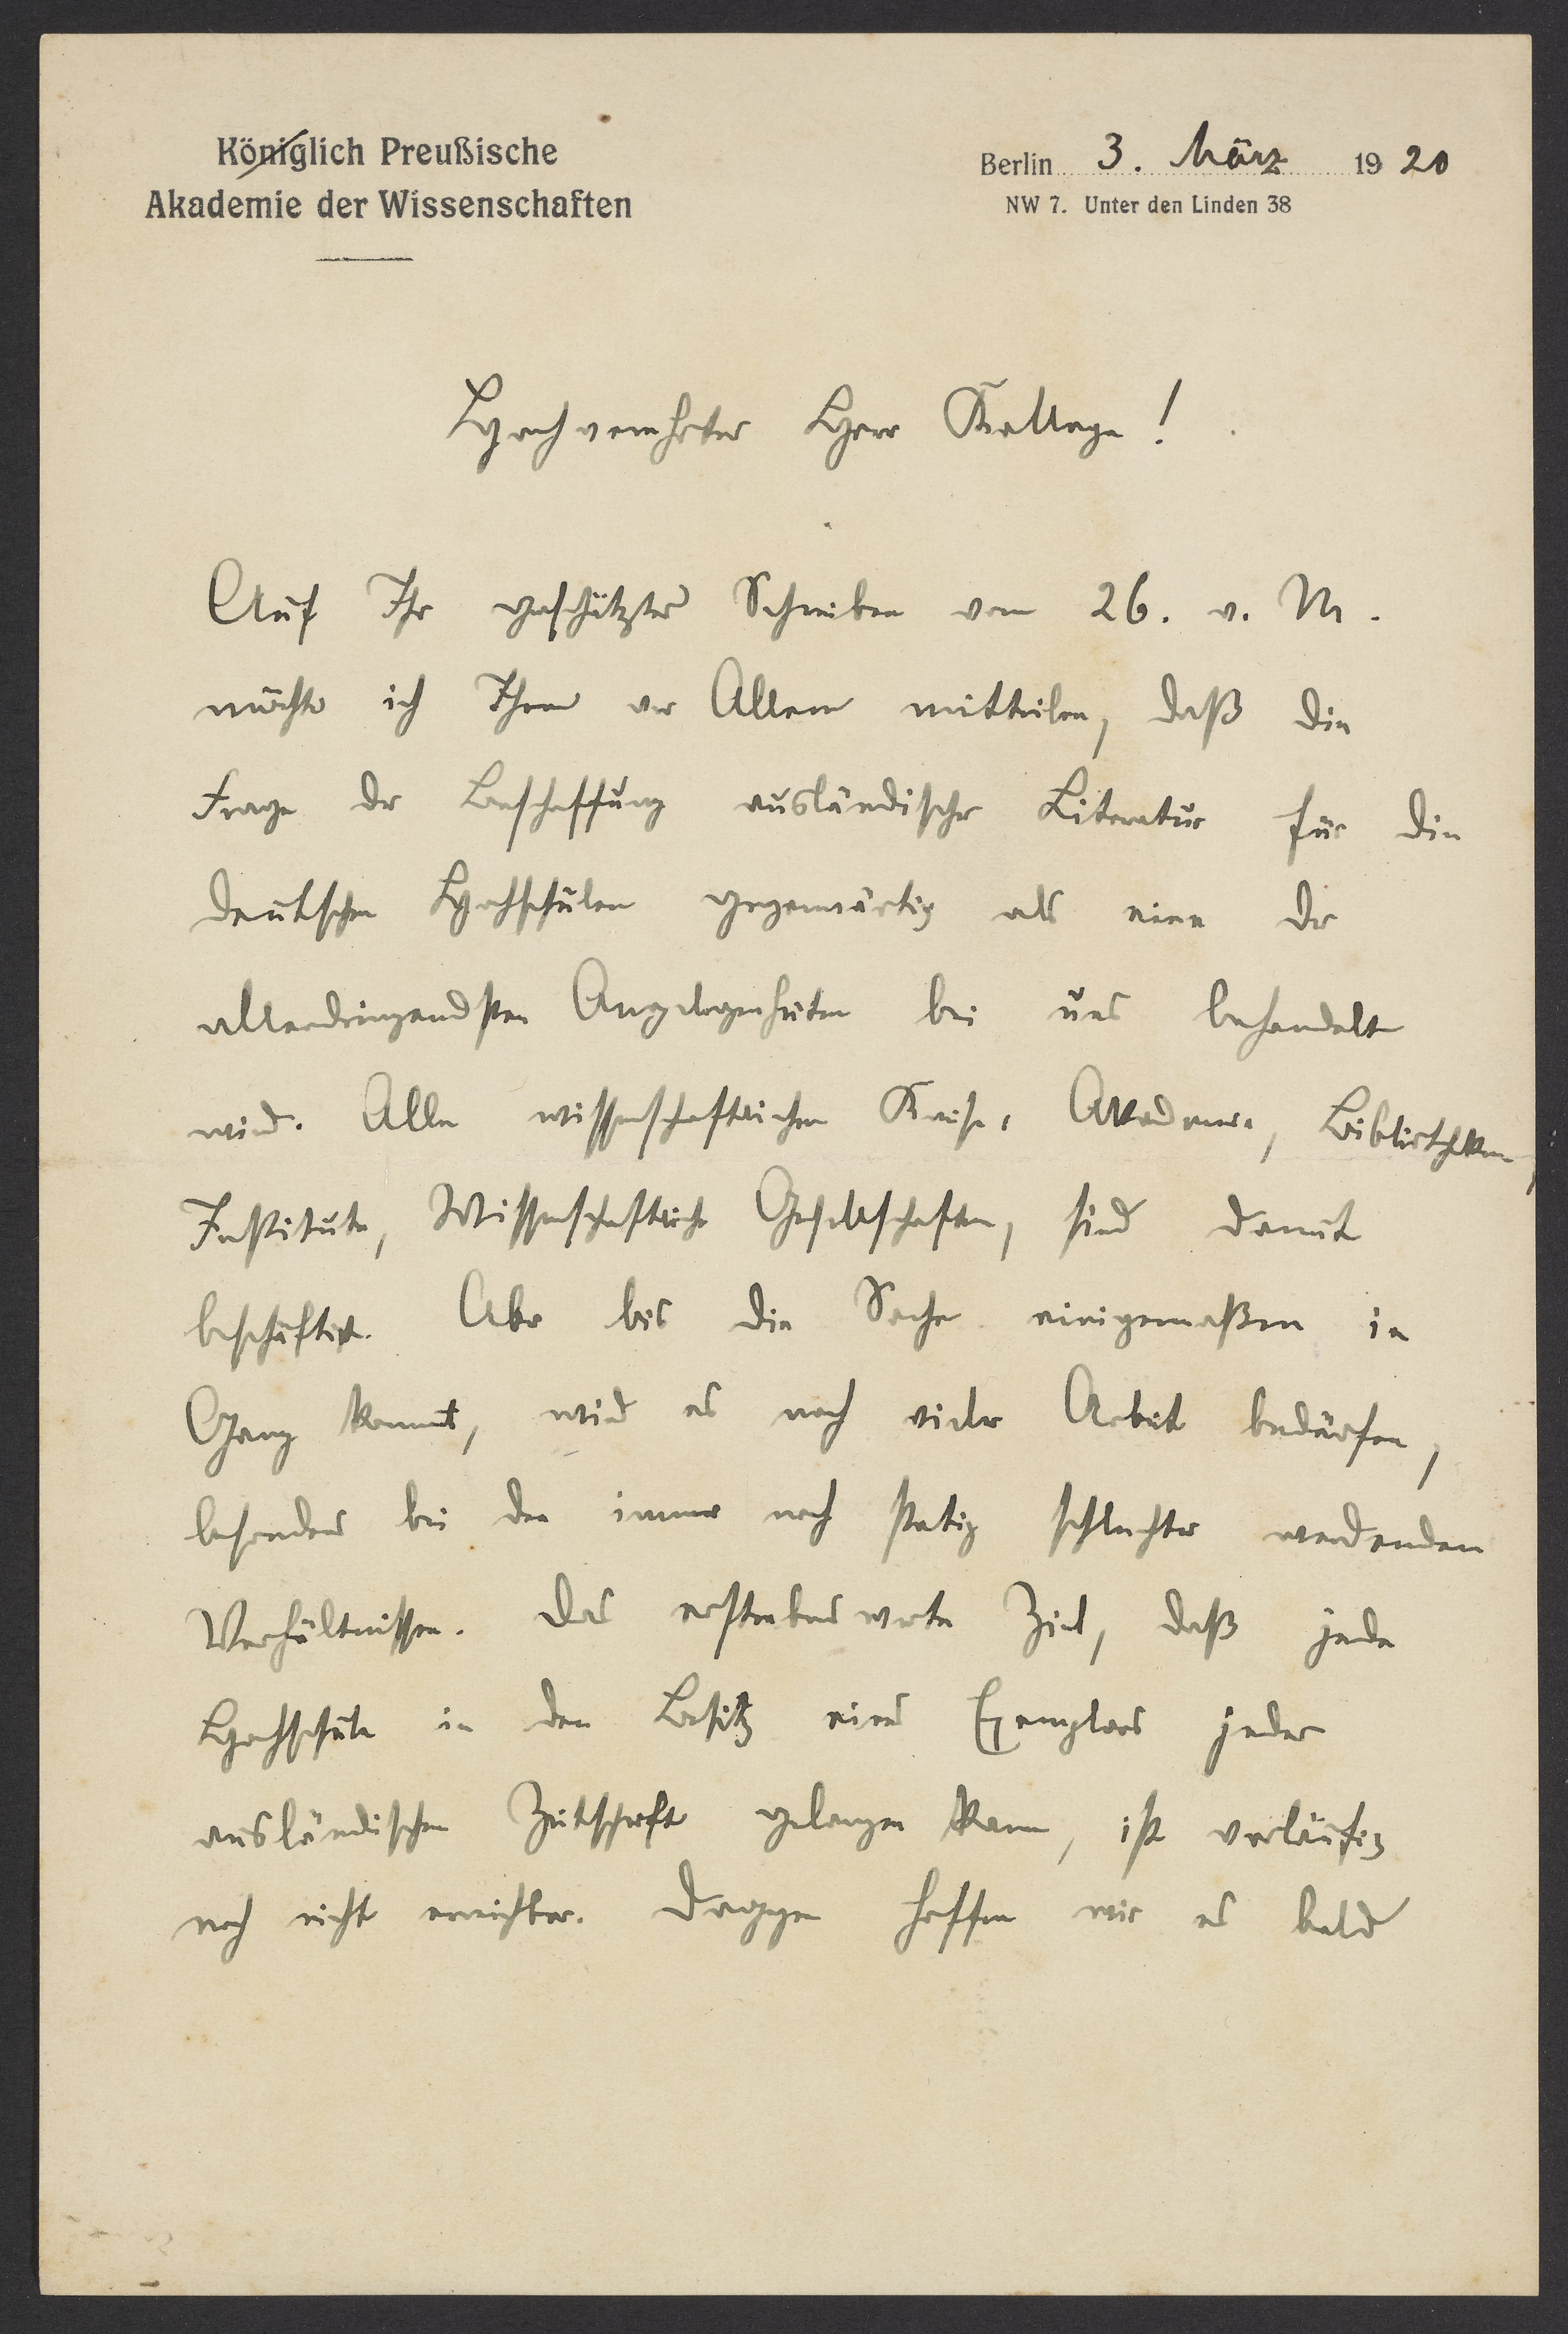 Königlich Preußische
Akademie der Wissenschaften
Berlin 3. März 1920
NW 7. Unter den Linden 38
Hochverehrter Herr Kollege!
Auf Ihr geschätztes Schreiben vom 26. v. M.
möchte ich Ihnen vor Allem mitteilen, daß die
Frage der Beschaffung ausländischer Literatur für die
deutschen Hochschulen gegenwärtig als eine der
allerdringendsten Angelegenheiten bei uns behandelt
wird. Alle wissenschaftlichen Kreise, Akademien, Bibliotheken,
Institute, Wissenschaftliche Gesellschaften, sind damit
beschäftigt. Aber bis die Sache einigermaßen in
Gang kommt, wird es noch vieler Arbeit bedürfen,
besonders bei den immer noch stetig schlechter werdenden
Verhältnissen. Das erstrebenswerte Ziel, daß jede
Hochschule in den Besitz eines Exemplars jeder
ausländischen Zeitschrift gelangen kann, ist vorläufig
noch nicht erreichbar. Dagegen hoffen wir es bald